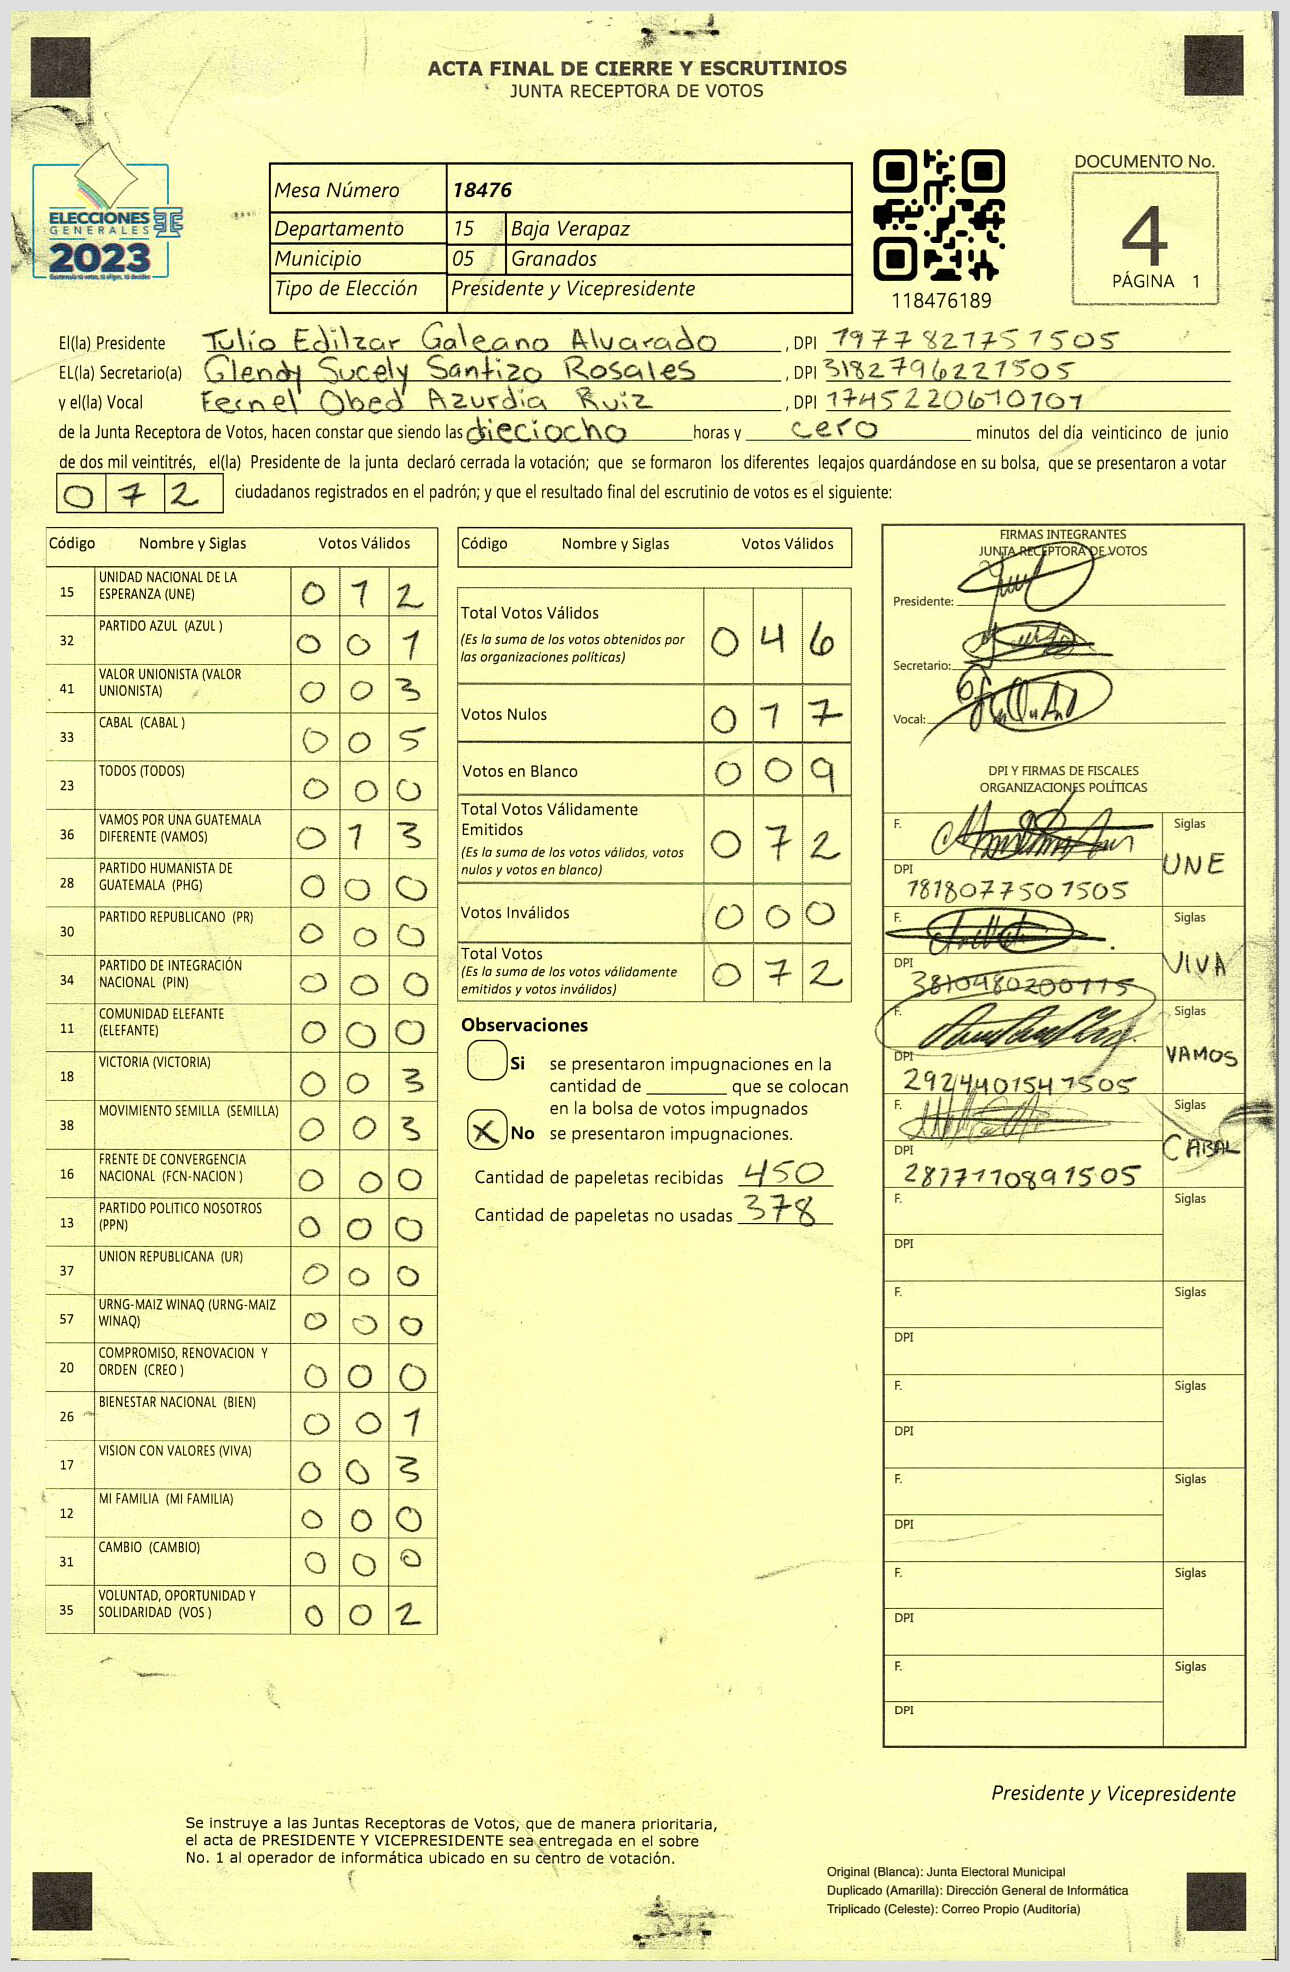 ACTA FINAL DE CIERRE Y ESCRUTINIOS
JUNTA RECEPTORA DE VOTOS
ELECCIONES
GENERALES
2023
Mesa Número 18476
Departamento 15 Baja Verapaz
Municipio 05 Granados
Tipo de Elección Presidente y Vicepresidente
118476189
DOCUMENTO No.
4
PÁGINA 1
El(la) Presidente Tulio Edilzar Galeano Alvarado, DPI 1977821751505
EL(la) Secretario(a) Glendy Sucely Santizo Rosales, DPI 3182796221505
y el(la) Vocal Fernel Obed Azurdia Ruiz, DPI 1745220610101
de la Junta Receptora de Votos, hacen constar que siendo las dieciocho horas y cero minutos del día veinticinco de junio
de dos mil veintitrés, el(la) Presidente de la junta declaró cerrada la votación; que se formaron los diferentes legajos guardándose en su bolsa, que se presentaron a votar
072 ciudadanos registrados en el padrón; y que el resultado final del escrutinio de votos es el siguiente:
Código Nombre y Siglas Votos Válidos
15 UNIDAD NACIONAL DE LA
ESPERANZA (UNE) 012
32 PARTIDO AZUL (AZUL ) 001
41 VALOR UNIONISTA (VALOR
UNIONISTA) 003
33 CABAL (CABAL ) 005
23 TODOS (TODOS) 000
36 VAMOS POR UNA GUATEMALA
DIFERENTE (VAMOS) 013
28 PARTIDO HUMANISTA DE
GUATEMALA (PHG) 000
30 PARTIDO REPUBLICANO (PR) 000
34 PARTIDO DE INTEGRACIÓN
NACIONAL (PIN) 000
11 COMUNIDAD ELEFANTE
(ELEFANTE) 000
18 VICTORIA (VICTORIA) 003
38 MOVIMIENTO SEMILLA (SEMILLA) 003
16 FRENTE DE CONVERGENCIA
NACIONAL (FCN-NACION ) 000
13 PARTIDO POLITICO NOSOTROS
(PPN) 000
37 UNION REPUBLICANA (UR) 000
57 URNG-MAIZ WINAQ (URNG-MAIZ
WINAQ) 000
20 COMPROMISO, RENOVACION Y
ORDEN (CREO ) 000
26 BIENESTAR NACIONAL (BIEN) 001
17 VISION CON VALORES (VIVA) 003
12 MI FAMILIA (MI FAMILIA) 000
31 CAMBIO (CAMBIO) 000
35 VOLUNTAD, OPORTUNIDAD Y
SOLIDARIDAD (VOS ) 002
Código Nombre y Siglas Votos Válidos
Total Votos Válidos 046
(Es la suma de los votos obtenidos por
las organizaciones políticas)
Votos Nulos 017
Votos en Blanco 009
Total Votos Válidamente
Emitidos 072
(Es la suma de los votos válidos, votos
nulos y votos en blanco)
Votos Inválidos 000
Total Votos 072
(Es la suma de los votos válidamente
emitidos y votos inválidos)
Observaciones
Si se presentaron impugnaciones en la
cantidad de ________ que se colocan
en la bolsa de votos impugnados
X No se presentaron impugnaciones.
Cantidad de papeletas recibidas 450
Cantidad de papeletas no usadas 378
FIRMAS INTEGRANTES
JUNTA RECEPTORA DE VOTOS
Presidente:
Secretario:
Vocal:
DPI Y FIRMAS DE FISCALES
ORGANIZACIONES POLÍTICAS
F. Siglas
UNE
DPI
1818077501505
F. Siglas
VIVA
DPI
3810480200115
F. Siglas
VAMOS
DPI
2924401541505
F. Siglas
CABAL
DPI
2817710891505
F. Siglas
DPI
F. Siglas
DPI
F. Siglas
DPI
F. Siglas
DPI
F. Siglas
DPI
F. Siglas
DPI
Presidente y Vicepresidente
Se instruye a las Juntas Receptoras de Votos, que de manera prioritaria,
el acta de PRESIDENTE Y VICEPRESIDENTE sea entregada en el sobre
No. 1 al operador de informática ubicado en su centro de votación.
Original (Blanca): Junta Electoral Municipal
Duplicado (Amarilla): Dirección General de Informática
Triplicado (Celeste): Correo Propio (Auditoría)